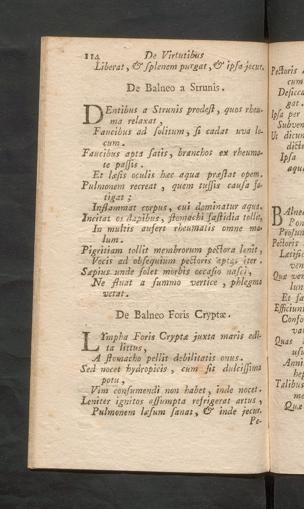 114 De Virtutibus
Liberat, & splenem purgat, & ipsa jecur.
De Balneo a Strunis.
DEntibus a Strunis prodest, quos rheu-
ma relaxat,
Faucibus ad solitum, si cadat uva lo-
cum.
Faucibus apta satis, branchos ex rheuma-
te passis.
Et læsis oculis hæc aqua præstat opem.
Pulmonem recreat, quem tussis causa fa-
tigat;
Inflammat corpus, cui dominatur aqua.
Incitat os dapibus, stomachi fastidia tollit,
In multis aufert rheumatis omne ma-
lum.
Pigritiam tollit membrorum pectora lenit,
Vocis ad obsequium pectoris aptat iter.
Sapius unde solet morbis occasio nasci,
Ne fluat a summo vertice, phlegma
vetat.
De Balneo Foris Cryptæ.
LYmpha Foris Cryptæ juxta maris edi-
ta littus,
A stomacho pellit debilitatis onus.
Sed nocet hydropicis, cum sit dulcissima
potu,
Vim consumendi non habet, inde nocet.
Leniter ignitos assumpta refrigerat artus,
Pulmonem læsum sanat, & inde jecur.
Pe-
Pectoris
cum
Desicca
gat.
Ipsa per
Subven
Ut dicun
Ipsa
aqua
BAlne
Pon
Profun
Pectoris
Lætific
ven
Quæ ven
lun
Et sa
Efficiunt
Confo
va
Quas
usu
Anni
hep
Talibus
mer
Quæ